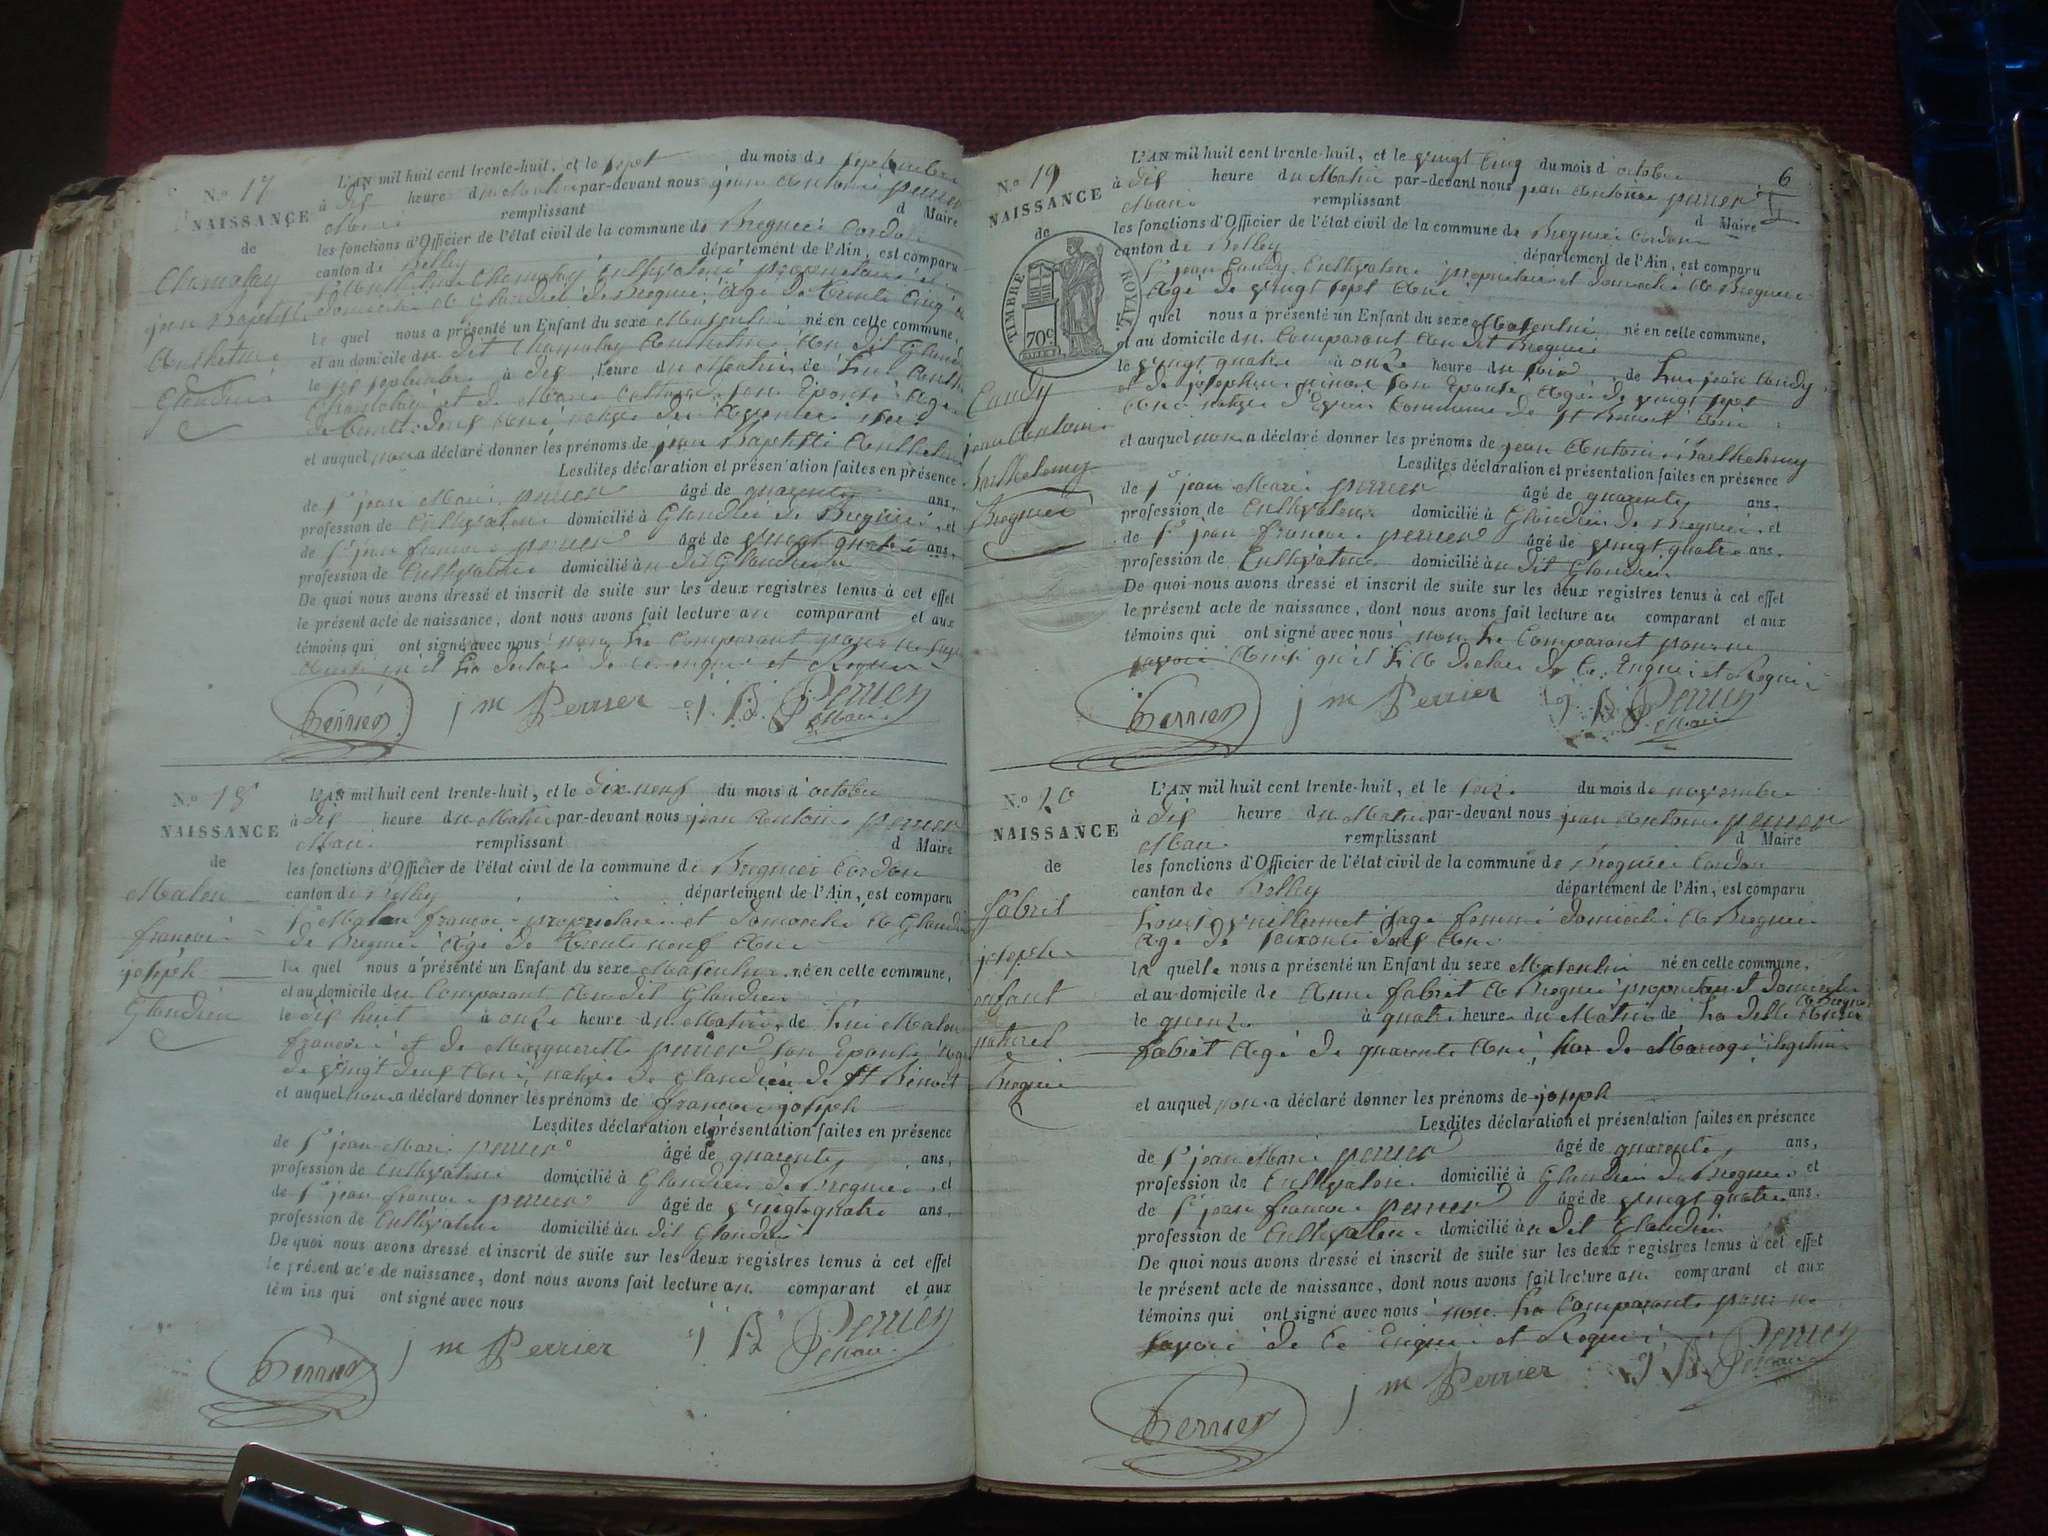 No 17
NAISSANCE
de
jean Baptiste
Anthelme
Glandieu
L'AN mil huit cent trente-huit, et le sept du mois de septembre
à dix heure du Matin par-devant nous jean Antoine perrier
Maire remplissant d Maire
les fonctions d'Officier de l'état civil de la commune de Bregnier Cordon
canton de Belley département de l'Ain, est comparu
domicilié à Glandieu de Bregnier, Agé de trente cinq
le quel nous a présenté un Enfant du sexe Masculin né en cette commune,
et au domicile du dit Anthelme Au dit Glandieu
le six septembre à dix heure du Matin de
et auquel nous a déclaré donner les prénoms de jean Baptiste Anthelme
Lesdites déclaration et présentation faites en présence
de Sr jean Marie perrier âgé de quarente ans,
profession de Cultivateur domicilié à Glandieu de Bregnier, et
de Sr jean françois perrier âgé de vingt quatre ans,
profession de Cultivateur domicilié à u dit Glandieu
De quoi nous avons dressé et inscrit de suite sur les deux registres tenus à cet effet
le présent acte de naissance, dont nous avons fait lecture au comparant et aux
témoins qui ont signé avec nous non le Comparant pour ne
de ce enquis et Requis
Perrier j m Perrier J. B. Perrier
Maire
No 18
NAISSANCE
de
Malen
françois
joseph
Glandieu
L'AN mil huit cent trente-huit, et le dix neuf du mois d'octobre
à dix heure du Matin par-devant nous jean Antoine perrier
Maire remplissant d Maire
les fonctions d'Officier de l'état civil de la commune de Bregnier Cordon
canton de Belley département de l'Ain, est comparu
Sr Malen françois propriétaire et domicilié à Glandieu
de Bregnier Agé de trente neuf Ans
le quel nous a présenté un Enfant du sexe Masculin né en cette commune,
et au domicile du Comparant Au dit Glandieu
le dix huit à onze heure du Matin, de lui Malen
françois et de Marguerette perrier son Epouse Agé
de vingt deux Ans, native de Glandieu de St Benoit
et auquel nous a déclaré donner les prénoms de françois joseph
Lesdites déclaration et présentation faites en présence
de Sr jean Marie perrier âgé de quarente ans,
profession de Cultivateur domicilié à Glandieu de Bregnier, et
de Sr jean françois perrier âgé de vingt quatre ans,
profession de Cultivateur domicilié à u dit Glandieu
De quoi nous avons dressé et inscrit de suite sur les deux registres tenus à cet effet
le présent acte de naissance, dont nous avons fait lecture au comparant et aux
témoins qui ont signé avec nous
Perrier j m Perrier J B Perrier
Maire
6
No 19
NAISSANCE
de
TIMBRE ROYAL
70c
Candy
jean Antoine
Barthelemy
Bregnier
L'AN mil huit cent trente-huit, et le vingt Cinq du mois d'octobre
à dix heure du Matin par-devant nous jean Antoine perrier
Maire remplissant d Maire
les fonctions d'Officier de l'état civil de la commune de Bregnier Cordon
canton de Belley département de l'Ain, est comparu
Sr jean Candy Cultivateur propriétaire et domicilié à Bregnier
Agé de vingt sept Ans
le quel nous a présenté un Enfant du sexe Masculin né en cette commune,
et au domicile du Comparant Au dit Bregnier
le vingt quatre à onze heure du soir, de lui jean Candy
et de josephte son Epouse Agée de vingt sept
Ans native Commune de St Benoit Ain
et auquel nous a déclaré donner les prénoms de jean Antoine Barthelemy
Lesdites déclaration et présentation faites en présence
de Sr jean Marie perrier âgé de quarente ans,
profession de Cultivateur domicilié à Glandieu de Bregnier, et
de Sr jean françois perrier âgé de vingt quatre ans,
profession de Cultivateur domicilié à u dit Glandieu
De quoi nous avons dressé et inscrit de suite sur les deux registres tenus à cet effet
le présent acte de naissance, dont nous avons fait lecture au comparant et aux
témoins qui ont signé avec nous non le Comparant pour ne
savoir Ainsi qu'il l'a declaré de Ce Enquis et Requis
Perrier j m Perrier J B Perrier
Maire
No 20
NAISSANCE
de
fabret
joseph
enfant
naturel
Bregnier
L'AN mil huit cent trente-huit, et le seize du mois de novembre
à dix heure du Matin par-devant nous jean Antoine perrier
Maire remplissant d Maire
les fonctions d'Officier de l'état civil de la commune de Bregnier Cordon
canton de Belley département de l'Ain, est comparu
Guillermet sage femme domicilié à Bregnier
Agé de soixante deux Ans
la quelle nous a présenté un Enfant du sexe Masculin né en cette commune,
et au domicile de Anne fabret à Bregnier propriétaire et domiciliée
à Bregnier
le quinze à quatre heure du Matin de la dite Anne
fabret Agé de quarente Ans, hor de Mariage légitime
et auquel nous a déclaré donner les prénoms de joseph
Lesdites déclaration et présentation faites en présence
de Sr jean Marie perrier âgé de quarente ans,
profession de Cultivateur domicilié à Glandieu de Bregnier et
de Sr jean françois perrier âgé de vingt quatre ans,
profession de Cultivateur domicilié à u dit Glandieu
De quoi nous avons dressé et inscrit de suite sur les deux registres tenus à cet effet
le présent acte de naissance, dont nous avons fait lecture au comparant et aux
témoins qui ont signé avec nous non la Comparante pour ne
savoir de Ce Enquis et Requis
Perrier j m Perrier J B Perrier
Maire